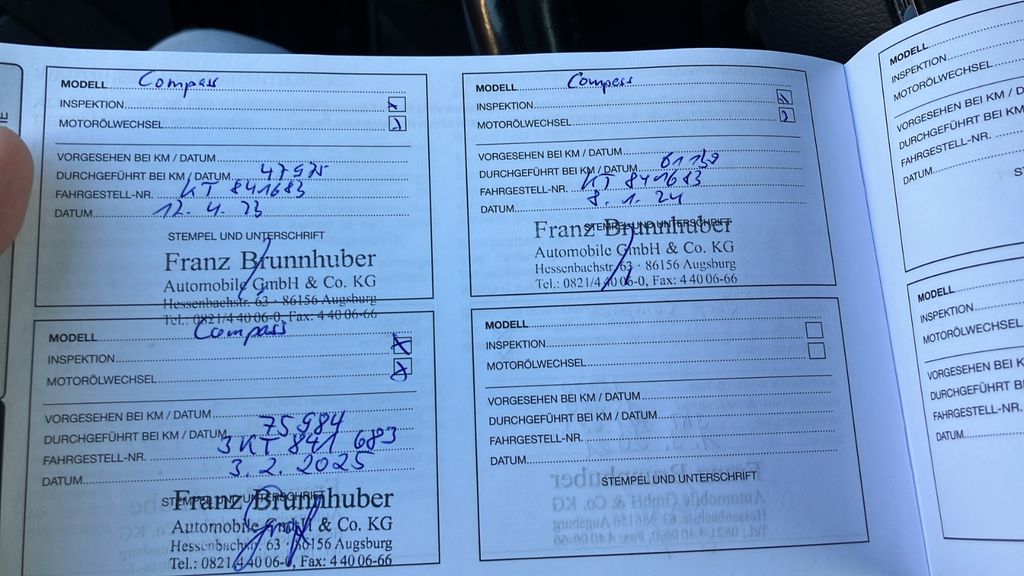 MODELL Compass
INSPEKTION
MOTORÖLWECHSEL
VORGESEHEN BEI KM / DATUM
DURCHGEFÜHRT BEI KM / DATUM 47975
FAHRGESTELL-NR. KT 841683
DATUM 12. 4. 23
STEMPEL UND UNTERSCHRIFT
Franz Brunnhuber
Automobile GmbH & Co. KG
Hessenbachstr. 63 · 86156 Augsburg
Tel.: 0821/4 40 06-0, Fax: 4 40 06-66
MODELL Compass
INSPEKTION
MOTORÖLWECHSEL
VORGESEHEN BEI KM / DATUM
DURCHGEFÜHRT BEI KM / DATUM 61139
FAHRGESTELL-NR. KT 841683
DATUM 8. 1. 24
STEMPEL UND UNTERSCHRIFT
Franz Brunnhuber
Automobile GmbH & Co. KG
Hessenbachstr. 63 · 86156 Augsburg
Tel.: 0821/4 40 06-0, Fax: 4 40 06-66
MODELL Compass
INSPEKTION
MOTORÖLWECHSEL
VORGESEHEN BEI KM / DATUM
DURCHGEFÜHRT BEI KM / DATUM 75984
FAHRGESTELL-NR. 3KT 841 683
DATUM 3. 2. 2025
STEMPEL UND UNTERSCHRIFT
Franz Brunnhuber
Automobile GmbH & Co. KG
Hessenbachstr. 63 · 86156 Augsburg
Tel.: 0821/4 40 06-0, Fax: 4 40 06-66
MODELL
INSPEKTION
MOTORÖLWECHSEL
VORGESEHEN BEI KM / DATUM
DURCHGEFÜHRT BEI KM / DATUM
FAHRGESTELL-NR.
DATUM
STEMPEL UND UNTERSCHRIFT
MODELL
INSPEKTION
MOTORÖLWECHSEL
VORGESEHEN BEI KM / D
DURCHGEFÜHRT BEI KM
FAHRGESTELL-NR.
DATUM
MODELL
INSPEKTION
MOTORÖLWECHSEL
VORGESEHEN BEI KM /
DURCHGEFÜHRT BEI K
FAHRGESTELL-NR.
DATUM